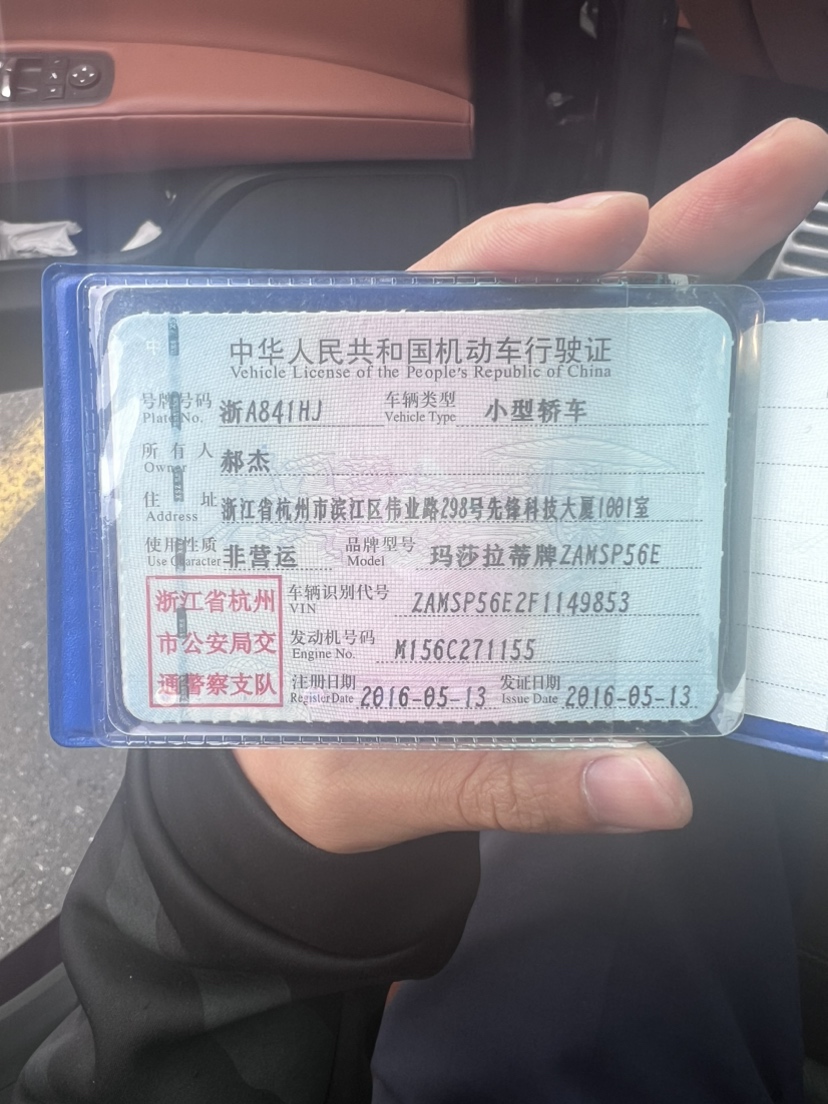 中华人民共和国机动车行驶证
Vehicle License of the People's Republic of China
号牌号码 浙A841HJ 车辆类型 小型轿车
Plate No. Vehicle Type
所有人 郝杰
Owner
住址 浙江省杭州市滨江区伟业路298号先锋科技大厦1001室
Address
使用性质 非营运 品牌型号 玛莎拉蒂牌ZAMSP56E
Use Character Model
浙江省杭州
市公安局交
通警察支队
车辆识别代号 ZAMSP56E2F1149853
VIN
发动机号码 M156C271155
Engine No.
注册日期 2016-05-13 发证日期 2016-05-13
Register Date Issue Date